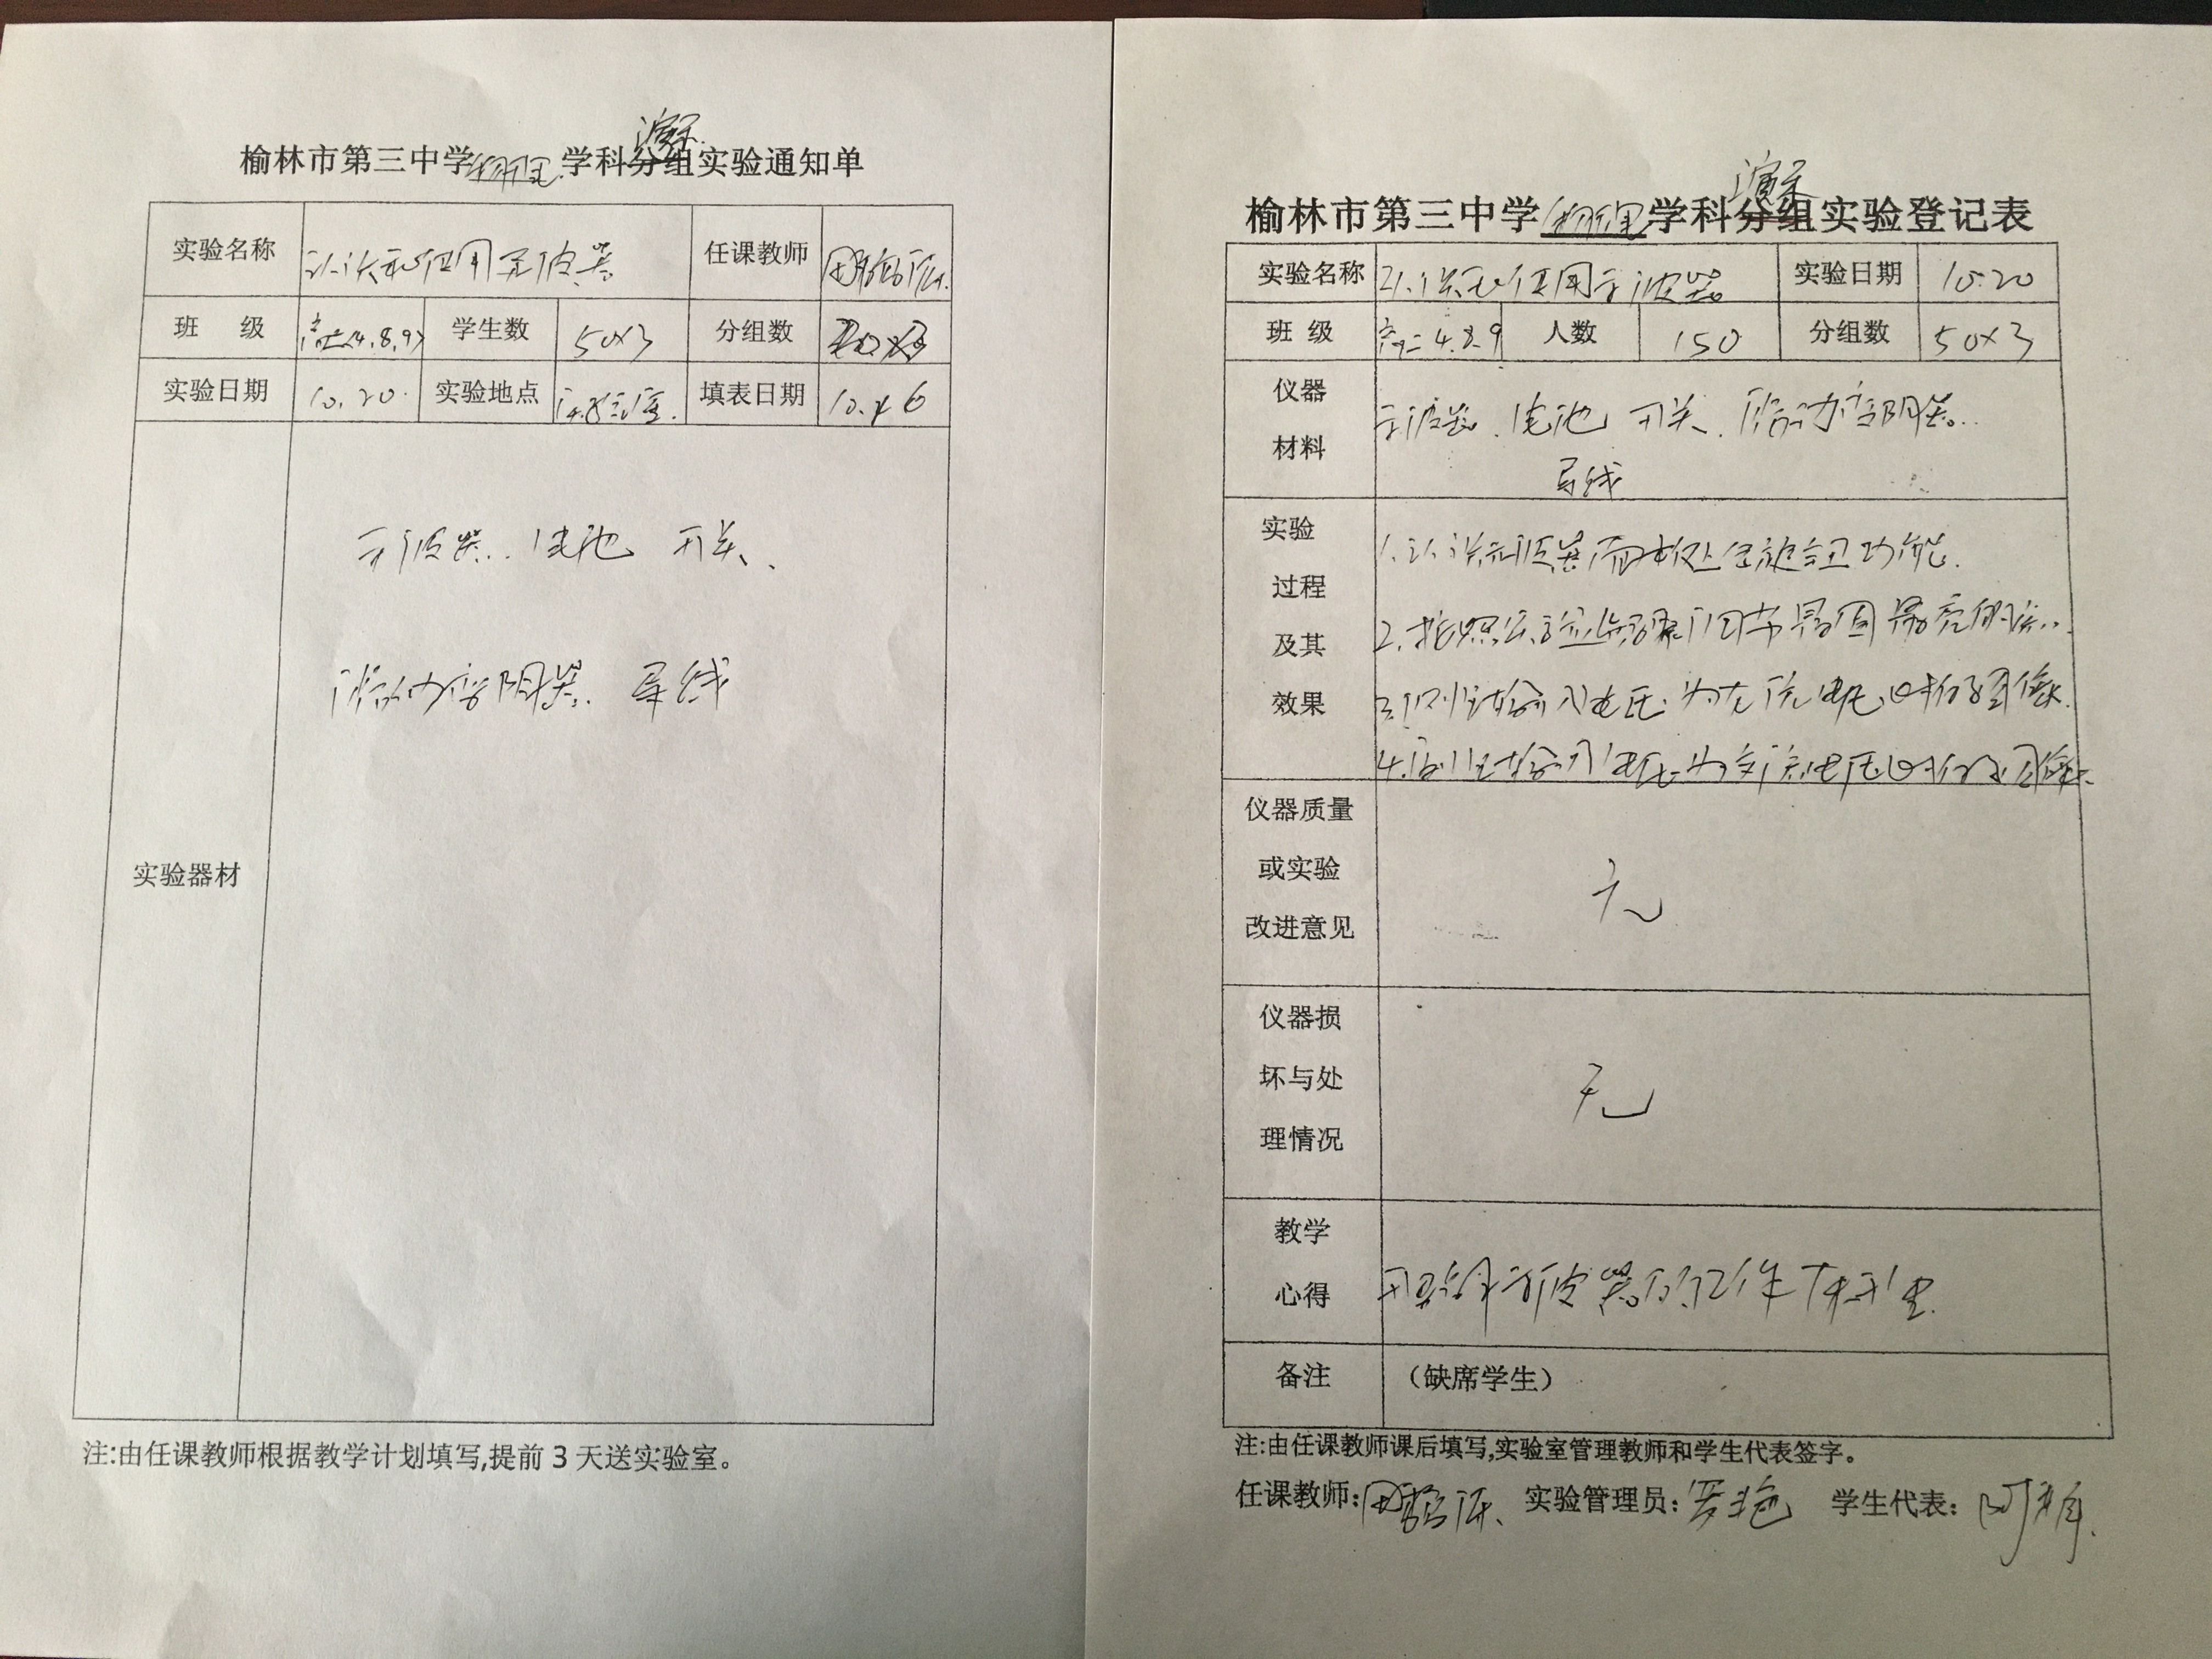 榆林市第三中学物理学科演示分组实验通知单
实验名称 认识和使用示波器 任课教师
班 级 高二(4.8.9) 学生数 50×3 分组数
实验日期 10.20. 实验地点 填表日期 10.16
示波器. 电池 开关、
滑动变阻器. 导线
实验器材
注:由任课教师根据教学计划填写,提前3天送实验室。
榆林市第三中学物理学科演示分组实验登记表
实验名称 认识和使用示波器 实验日期 10.20
班 级 高二4.8.9 人数 150 分组数 50×3
仪器材料 示波器. 电池 开关. 滑动变阻器..
导线
实验过程及其效果 1.认识示波器面板处各旋钮功能.
2.按照实验步骤调节
3.测试输入电压为直流电压时的图像.
4.测试输入电压为交流电压时的图像.
仪器质量或实验改进意见 无
仪器损坏与处理情况 无
教学心得 示波器的工作原理.
备注 (缺席学生)
注:由任课教师课后填写,实验室管理教师和学生代表签字。
任课教师: 实验管理员: 学生代表: